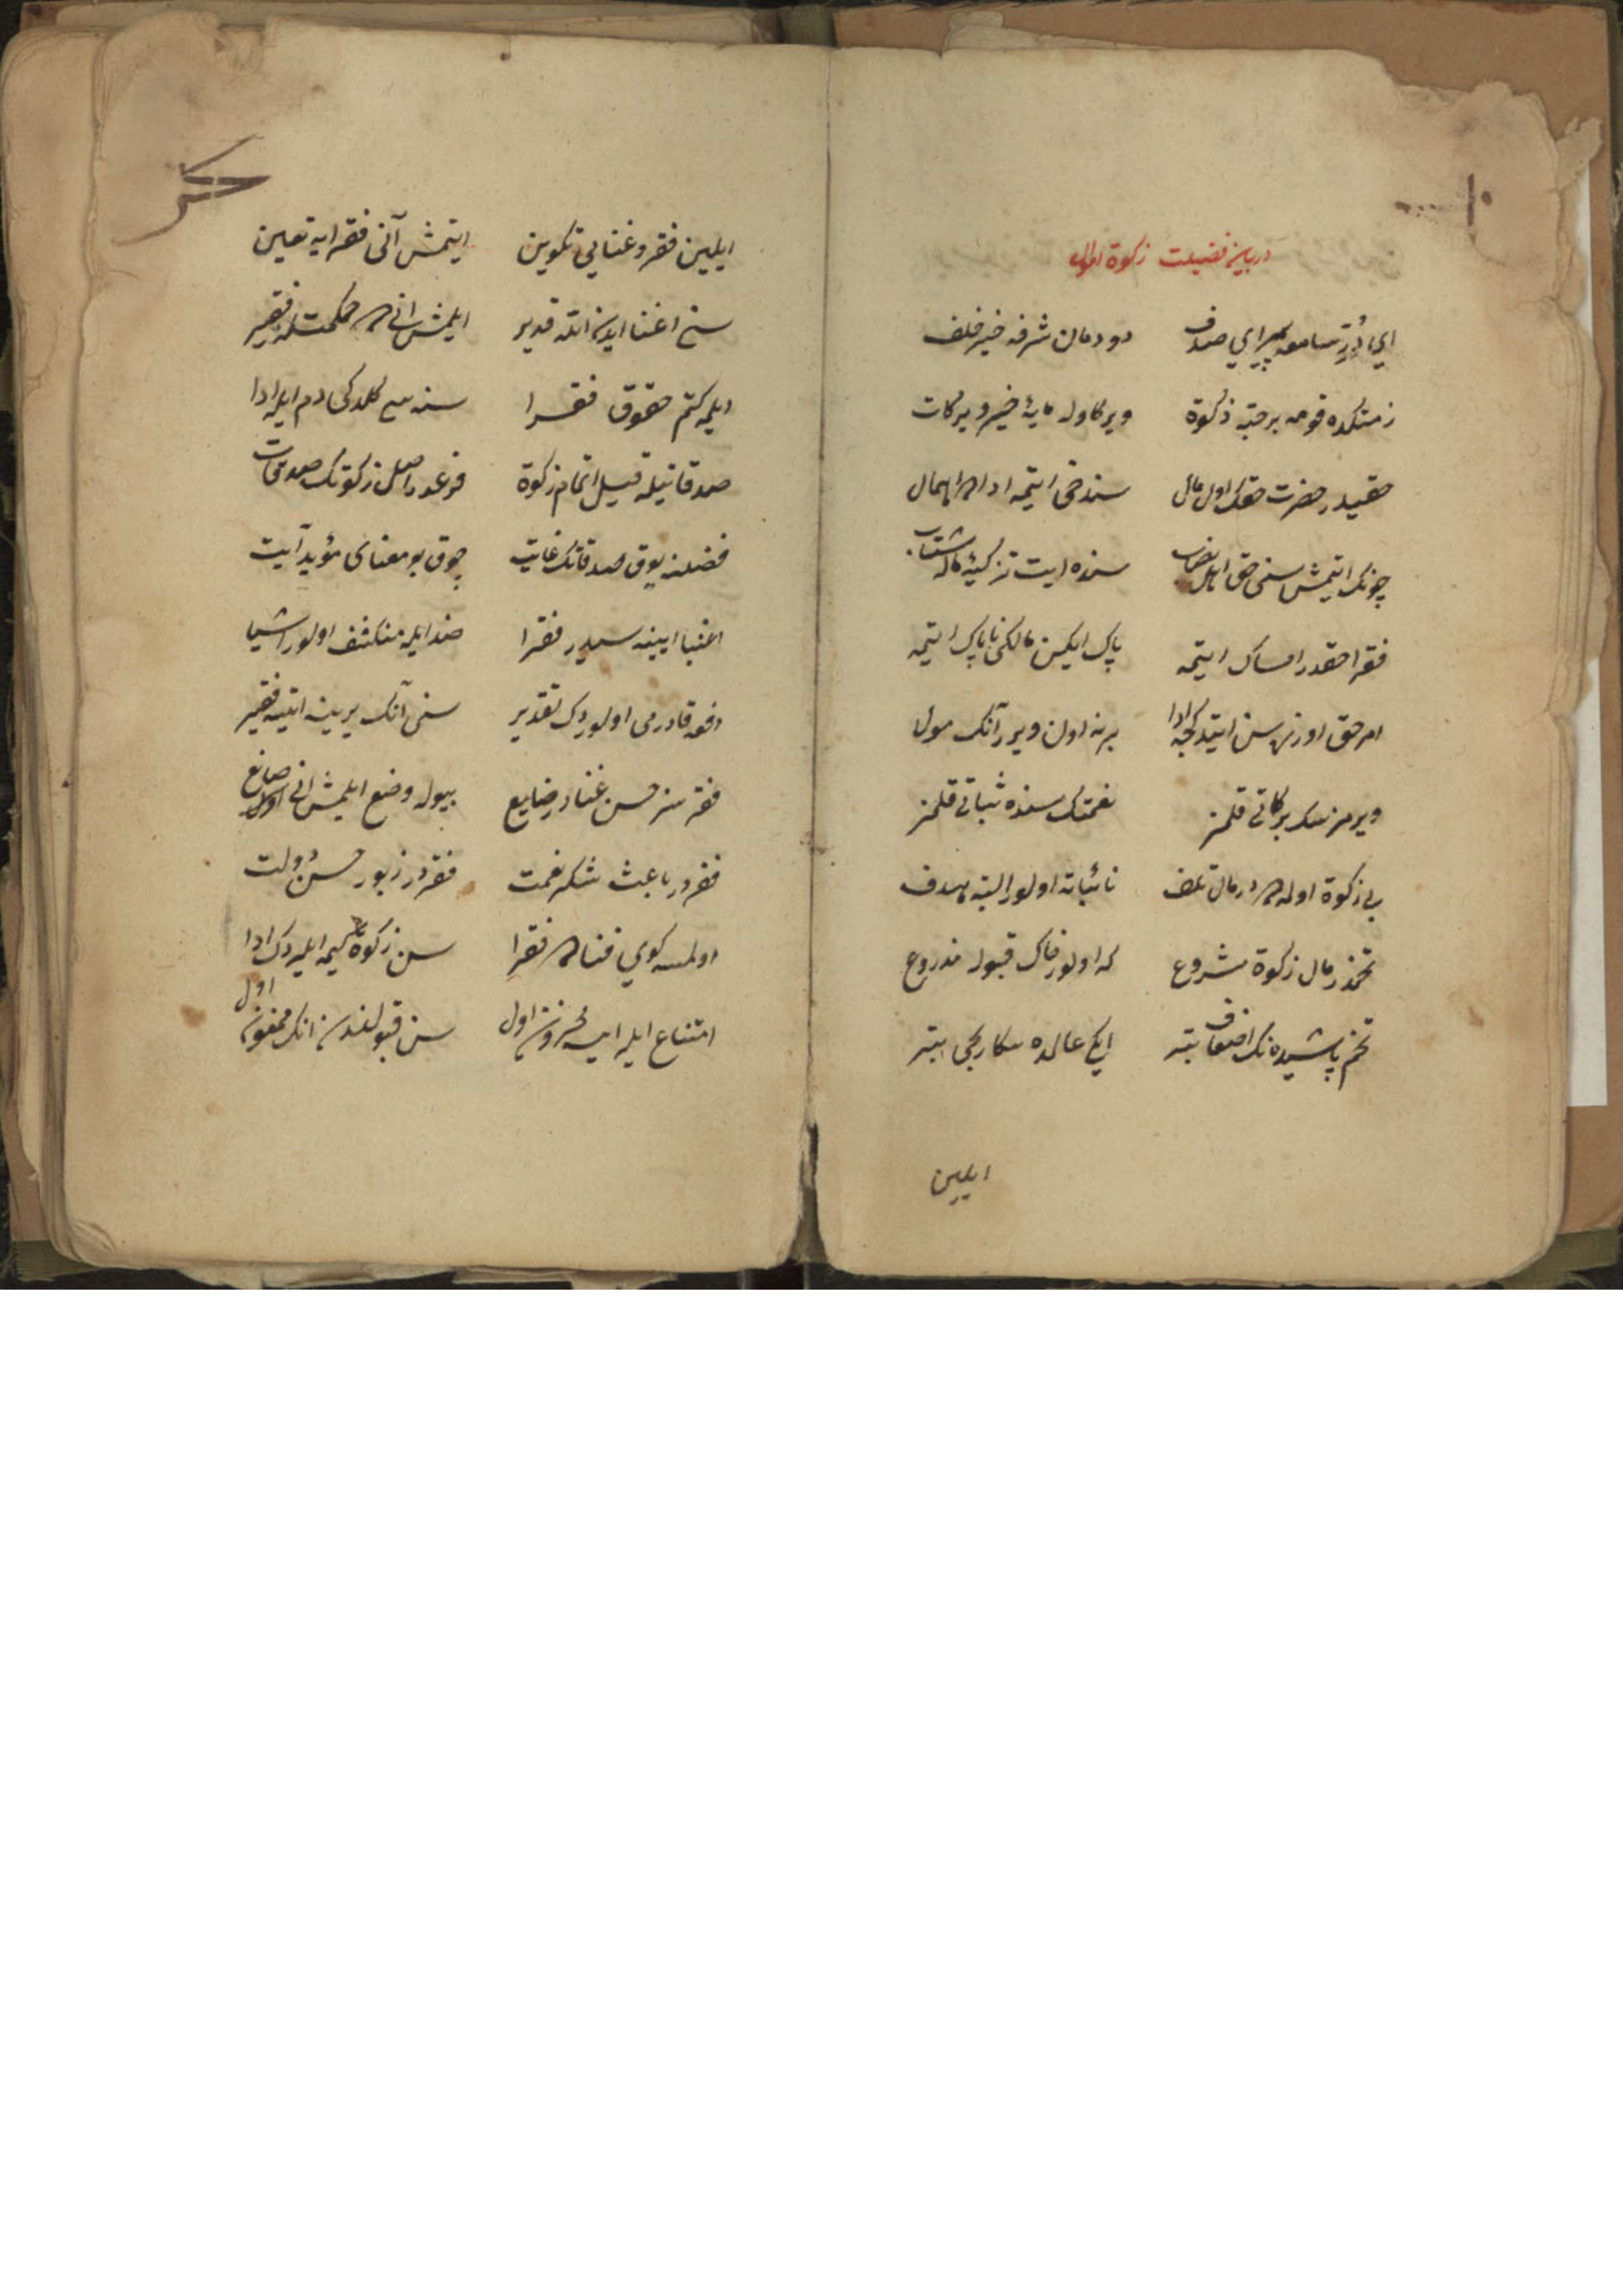 در بیان فضیلت زکوة اموال
ای در سامعه پیرای صدف دودمان شرفه خیر خلف
ذمتکده قومه بر حبه زکوة ویرکه اوله مایۀ خیر و برکات
حقیدر حضرت حقک اول مال سن دخی ایتمه اداده اهمال
چونکه ایتمش سنی حق اهل نصاب سن ده ایت تزکیۀ ماله شتاب
فقرا حقدر امساک ایتمه پاک ایکن مالکی ناپاک ایتمه
امر حق اوزره سن ایتدکجه ادا یرینه اون ویرر آنک مولا
ویرمزسک برکاتی قلمز نعمتک سنده ثباتی قلمز
بی زکوة اولمه در مال تلف نائباته اولور البته هدف
تخمدر مال زکوة مشروع که اولور خاک قبوله مزروع
تخم پاشیده نک اضعاف بتر ایکی عالمده سکا ریحی یتر
ایلین
ایلین فقر و غنایی تکوین ایتمش آنی فقرایه تعیین
سنی اغنا ایدن الله قدیر ایلمش انی ده حکمتله فقیر
ایلمه کتم حقوق فقرا سنه سی کلدکی دم ایله ادا
صدقاتیله قیل اتمام زکوة فرعدر اصل زکوتک صدقات
فضلنه یوق صدقاتک غایت چوق بو معنای مؤید آیت
اغنیا ایینه سیدر فقرا ضد ایله منکشف اولور اشیا
دفعه قادرمی اولوردک تقدیر سنی آنک یرینه ایتسه فقیر
فقرسز حسن غنادر ضایع بویله وضع ایلمش انی اول صانع
فقردر باعث شکر نعمت فقردر زیور حسن دولت
اولمسه کوی فناده فقرا سن زکوة کیمه ایلردک ادا
امتناع ایلر ایسه محزون اول سن قبولندن انک ممنون اول